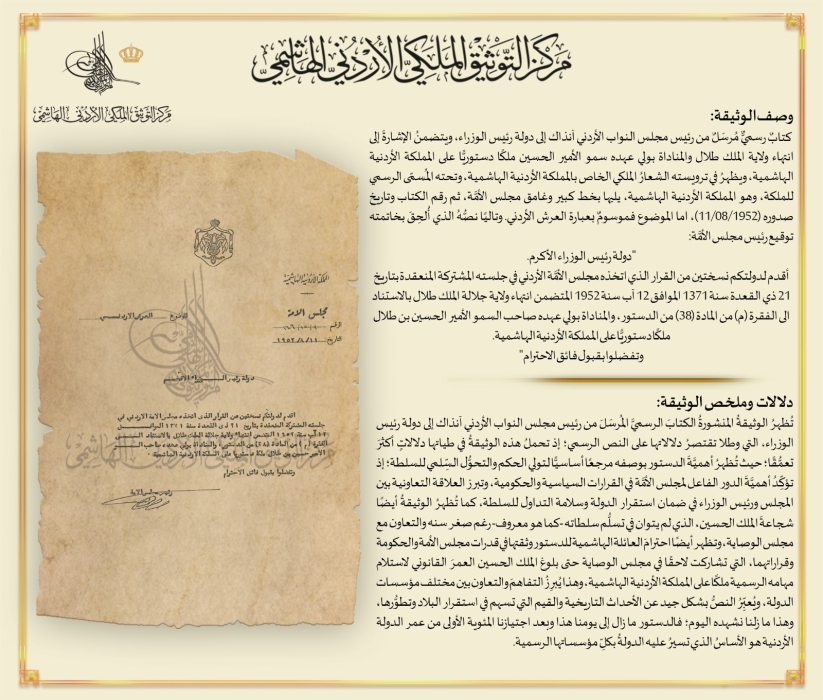 مركز التوثيق الملكي الأردني الهاشمي
مركز التوثيق الملكي الأردني الهاشمي
وصف الوثيقة:
كتابٌ رسميٌّ مُرسَلٌ من رئيس مجلس النواب الأردني آنذاك إلى دولة رئيس الوزراء، ويتضمنُ الإشارةَ إلى
انتهاء ولاية الملك طلال والمناداة بولي عهده سمو الأمير الحسين ملكًا دستوريًّا على المملكة الأردنية
الهاشمية، ويظهرُ في ترويسته الشعارُ الملكي الخاص بالمملكة الأردنية الهاشمية، وتحته المُسمّى الرسمي
للملكة، وهو المملكة الأردنية الهاشمية، يليها بخط كبير وغامق مجلس الأمّة، ثم رقم الكتاب وتاريخ
صدوره (11/08/1952)، اما الموضوع فموسومٌ بعبارة العرش الأردني. وتاليًا نصُّهُ الذي أُلحِقَ بخاتمته
توقيع رئيس مجلس الأمّة:
"دولة رئيس الوزراء الأكرم.
أقدم لدولتكم نسختين من القرار الذي اتخذه مجلس الأمّة الأردني في جلسته المشتركة المنعقدة بتاريخ
21 ذي القعدة سنة 1371 الموافق 12 آب سنة 1952 المتضمن انتهاء ولاية جلالة الملك طلال بالاستناد
الى الفقرة (م) من المادة (38) من الدستور، والمناداة بولي عهده صاحب السمو الأمير الحسين بن طلال
ملكا دستوريًّا على المملكة الأردنية الهاشمية.
وتفضلوا بقبول فائق الاحترام"
دلالات وملخص الوثيقة:
تُظهِرُ الوثيقةُ المنشورةُ الكتابَ الرسميَّ المُرسَلَ من رئيس مجلس النواب الأردني آنذاك إلى دولة رئيس
الوزراء، التي وطلا تقتصرُ دلالاتها على النص الرسمي؛ إذ تحملُ هذه الوثيقةُ في طياتها دلالاتٍ أكثرَ
تعمُّقًا؛ حيث تُظهِرُ أهميَّةَ الدستور بوصفه مرجعًا أساسيًّا لتولي الحكم والتحوُّل السِّلمي للسلطة؛ إذ
تؤكِّدُ أهميَّةَ الدور الفاعل لمجلس الأمَّة في القرارات السياسية والحكومية، وتبرز العلاقة التعاونية بين
المجلس ورئيس الوزراء في ضمان استقرار الدولة وسلامة التداول للسلطة، كما تُظهِرُ الوثيقةُ أيضًا
شجاعةَ الملك الحسين، الذي لم يتوان في تسلُّم سلطاته -كما هو معروف- رغم صغر سنه والتعاون مع
مجلس الوصاية، وتظهر أيضًا احترامَ العائلة الهاشمية للدستور وثقتها في قدرات مجلس الأمة والحكومة
وقراراتهما، التي تشاركت لاحقًا في مجلس الوصاية حتى بلوغ الملك الحسين العمرَ القانوني لاستلام
مهامه الرسمية ملكًا على المملكة الأردنية الهاشمية، وهذا يُبرِزُ التفاهمَ والتعاون بين مختلف مؤسسات
الدولة، ويُعبِّرُ النصُّ بشكل جيد عن الأحداث التاريخية والقيم التي تسهم في استقرار البلاد وتطوُّرها،
وهذا ما زلنا نشهده اليوم؛ فالدستور ما زال إلى يومنا هذا وبعد اجتيازنا المئوية الأولى من عمر الدولة
الأردنية هو الأساسُ الذي تسيرُ عليه الدولةُ بكلِّ مؤسساتها الرسمية.
المملكة الأردنية الهاشمية
مجلس الامة
الرقم
التاريخ ١٩٥٢/٨/١١
الموضوع العرش الاردني
دولة رئيس الوزراء الأفخم
اقدم لدولتكم نسختين من القرار الذي اتخذه مجلس الامة الاردني في
جلسته المشتركة المنعقدة بتاريخ ٢١ ذي القعدة سنة ١٣٧١ الموافق
١٢ آب سنة ١٩٥٢ المتضمن انتهاء ولاية جلالة الملك طلال بالاستناد الى
الفقرة (م) من المادة (٣٨) من الدستور، والمناداة بولي عهده صاحب السمو
الامير حسين بن طلال ملكا دستوريا على المملكة الاردنية الهاشمية .
وتفضلوا بقبول فائق الاحترام
رئيس مجلس الامة